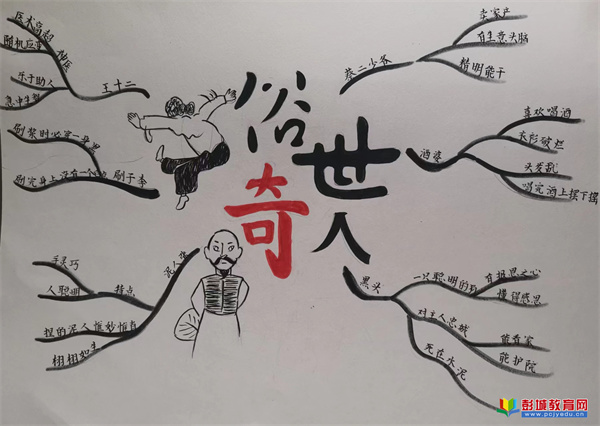 俗世奇人
医术高超
随机应变
神医
乐于助人
急中生智
王十二
刷浆时必穿一身黑
刷完身上没有一个白点
刷子李
泥人张
手灵巧
人聪明
特点
捏的泥人惟妙惟肖
栩栩如生
蔡二少爷
卖家产
有生意头脑
精明能干
酒婆
喜欢喝酒
衣衫破烂
头发乱
喝完酒上摆下摆
黑头
一只聪明的狗
有报恩之心
懂得感恩
对主人忠诚
能看家
能护院
死在水泥
彭城教育网
www.pcjyedu.cn